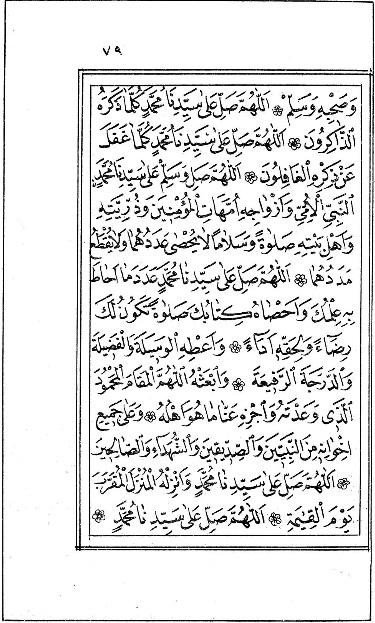 ٧٩
وَصَحْبِهِ وَسَلِّمْ ۞ اَللّٰهُمَّ صَلِّ عَلٰى سَيِّدِنَا مُحَمَّدٍ كُلَّمَا ذَكَرَهُ
الذَّاكِرُونَ ۞ اَللّٰهُمَّ صَلِّ عَلٰى سَيِّدِنَا مُحَمَّدٍ كُلَّمَا غَفَلَ
عَنْ ذِكْرِهِ الْغَافِلُونَ ۞ اَللّٰهُمَّ صَلِّ وَسَلِّمْ عَلٰى سَيِّدِنَا مُحَمَّدٍ
النَّبِيِّ الْاُمِّيِّ وَاَزْوَاجِهِ اُمَّهَاتِ الْمُؤْمِنِينَ وَذُرِّيَّتِهِ
وَاَهْلِ بَيْتِهِ صَلٰوةً وَسَلَامًا لَا يُحْصٰى عَدَدُهُمَا وَلَا يُقْطَعُ
مَدَدُهُمَا ۞ اَللّٰهُمَّ صَلِّ عَلٰى سَيِّدِنَا مُحَمَّدٍ عَدَدَ مَا اَحَاطَ
بِهِ عِلْمُكَ وَاَحْصَاهُ كِتَابُكَ صَلٰوةً تَكُونُ لَكَ
رِضَاءً وَلِحَقِّهِ اَدَاءً ۞ وَاَعْطِهِ الْوَسِيلَةَ وَالْفَضِيلَةَ
وَالدَّرَجَةَ الرَّفِيعَةَ ۞ وَابْعَثْهُ اللّٰهُمَّ الْمَقَامَ الْمَحْمُودَ
الَّذِى وَعَدْتَهُ وَاجْزِهِ عَنَّا مَا هُوَ اَهْلُهُ ۞ وَعَلٰى جَمِيعِ
اِخْوَانِهِ مِنَ النَّبِيِّينَ وَالصِّدِّيقِينَ وَالشُّهَدَاءِ وَالصَّالِحِينَ
۞ اَللّٰهُمَّ صَلِّ عَلٰى سَيِّدِنَا مُحَمَّدٍ وَاَنْزِلْهُ الْمُنْزَلَ الْمُقَرَّبَ
يَوْمَ الْقِيٰمَةِ ۞ اَللّٰهُمَّ صَلِّ عَلٰى سَيِّدِنَا مُحَمَّدٍ ۞